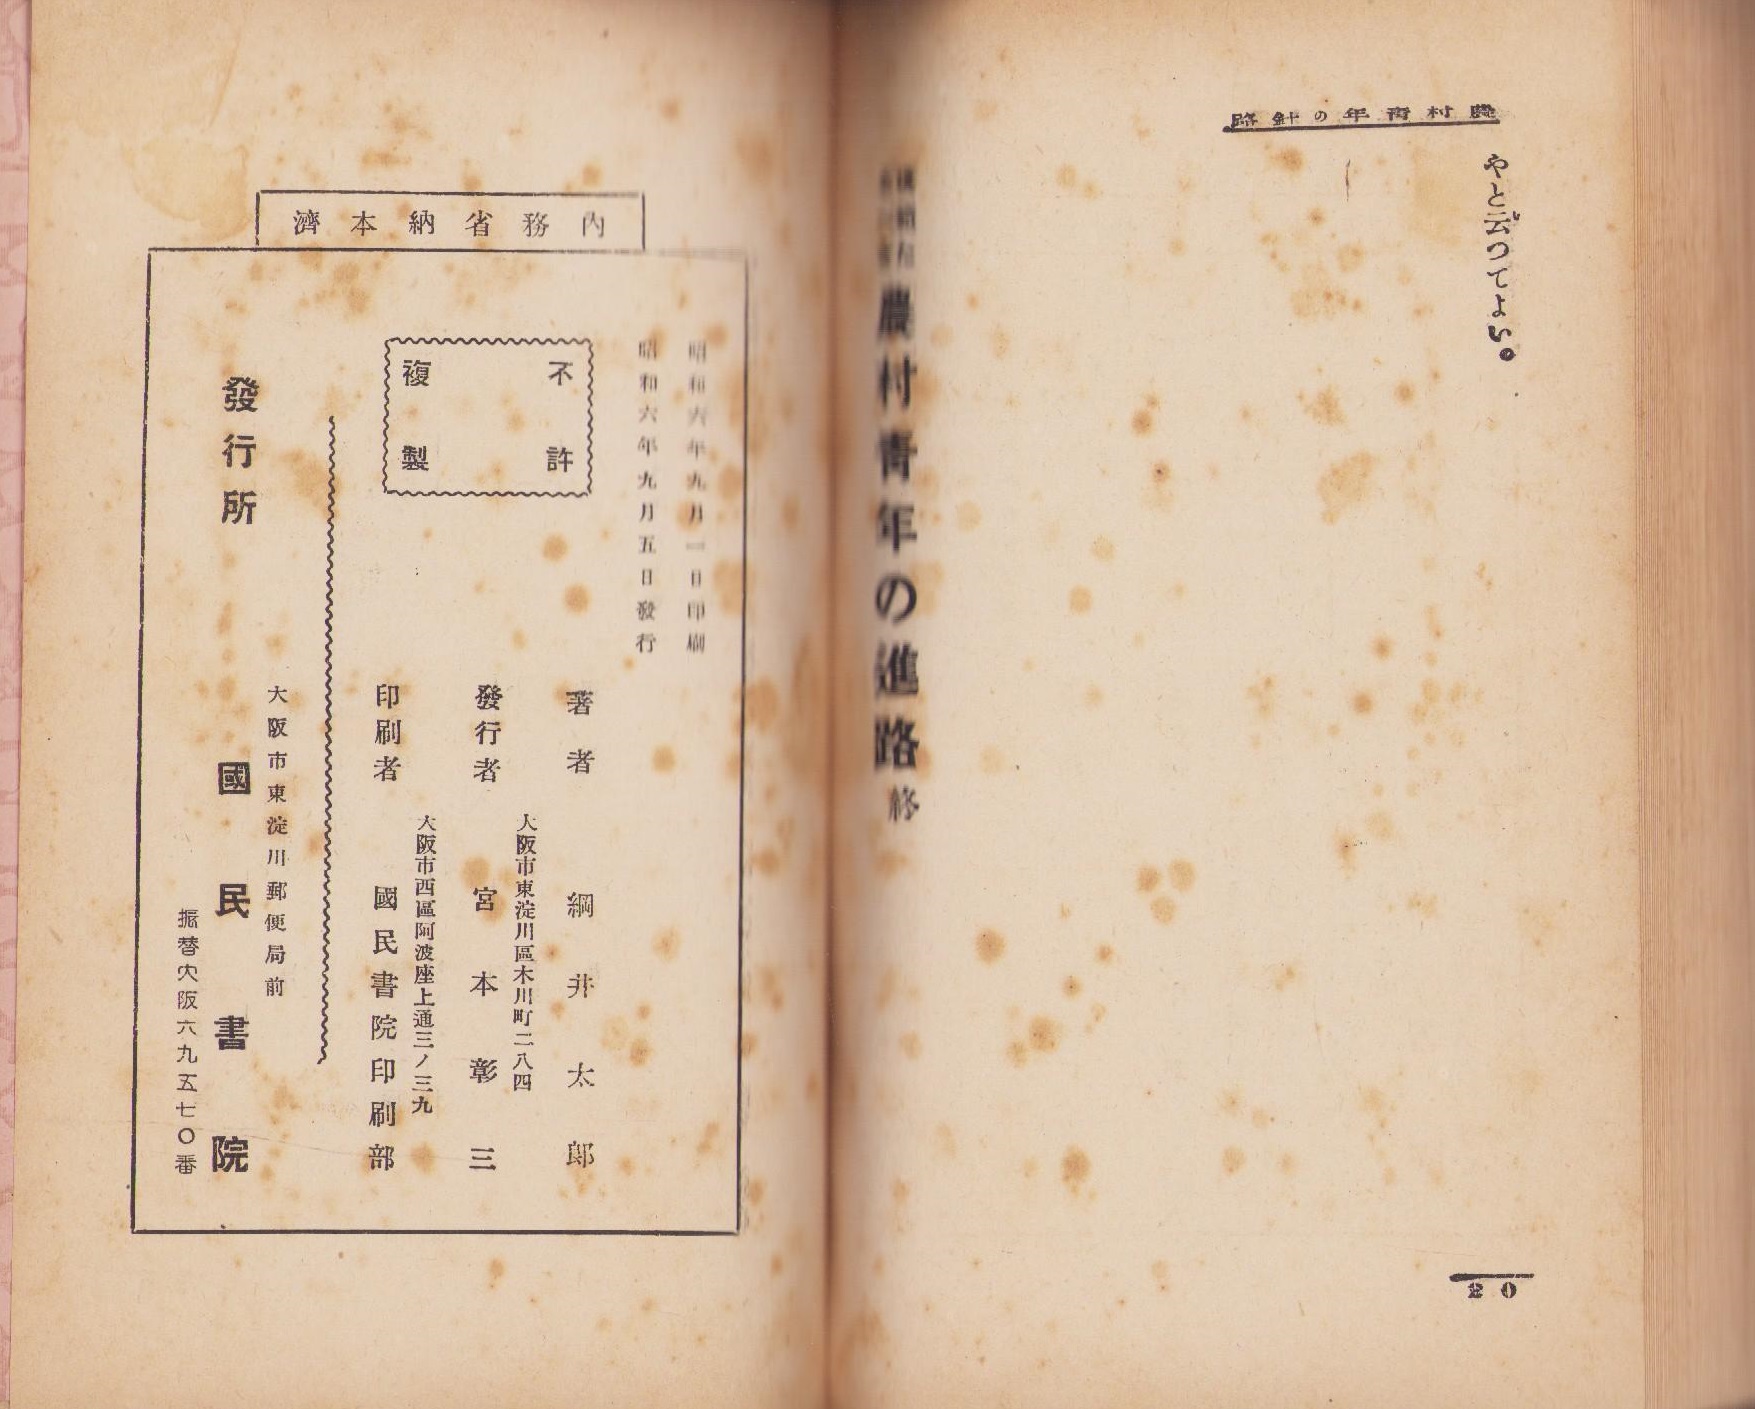 農村青年の針路
やと云つてよい。
農村青年の進路 終
20
内務省納本濟
昭和六年九月一日印刷
昭和六年九月五日發行
不許
複製
著者 綱井太郎
大阪市東淀川區木川町二八四
發行者 宮本彰三
大阪市西區阿波座上通三ノ三九
印刷者 國民書院印刷部
大阪市東淀川郵便局前
發行所 國民書院
振替大阪六九五七〇番